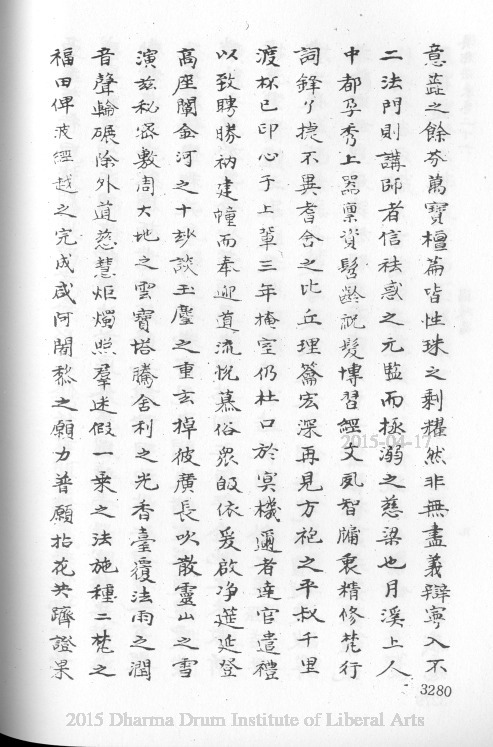 意蕋之餘芬萬寶檀篇皆性珠之剩耀然非無盡義辯寧入不
二法門則講師者信袪惑之元監而拯溺之慈梁也月溪上人
中都孕秀上器禀資髫齡祝髮博習經文夙智牖衷精修梵行
詞鋒捷不異耆舍之比丘理籥宏深再見方袍之平叔千里
渡杯已印心于上輩三年掩室仍杜口於冥機邇者達官遣禮
以致聘勝衲建幢而奉迎道流悅慕俗眾皈依爰啟净筵延登
高座闡金河之十妙談玉麈之重玄掉彼廣長吹散靈山之雪
演兹秘密敷周大地之雲寶塔騰舍利之光香臺覆法雨之潤
音聲輪碾除外道慈慧炬燭照羣迷假一乘之法施種二梵之
福田俾波經越之完成咸阿閦黎之願力普願拈花共躋證果
3280
2015-04-17
2015 Dharma Drum Institute of Liberal Arts